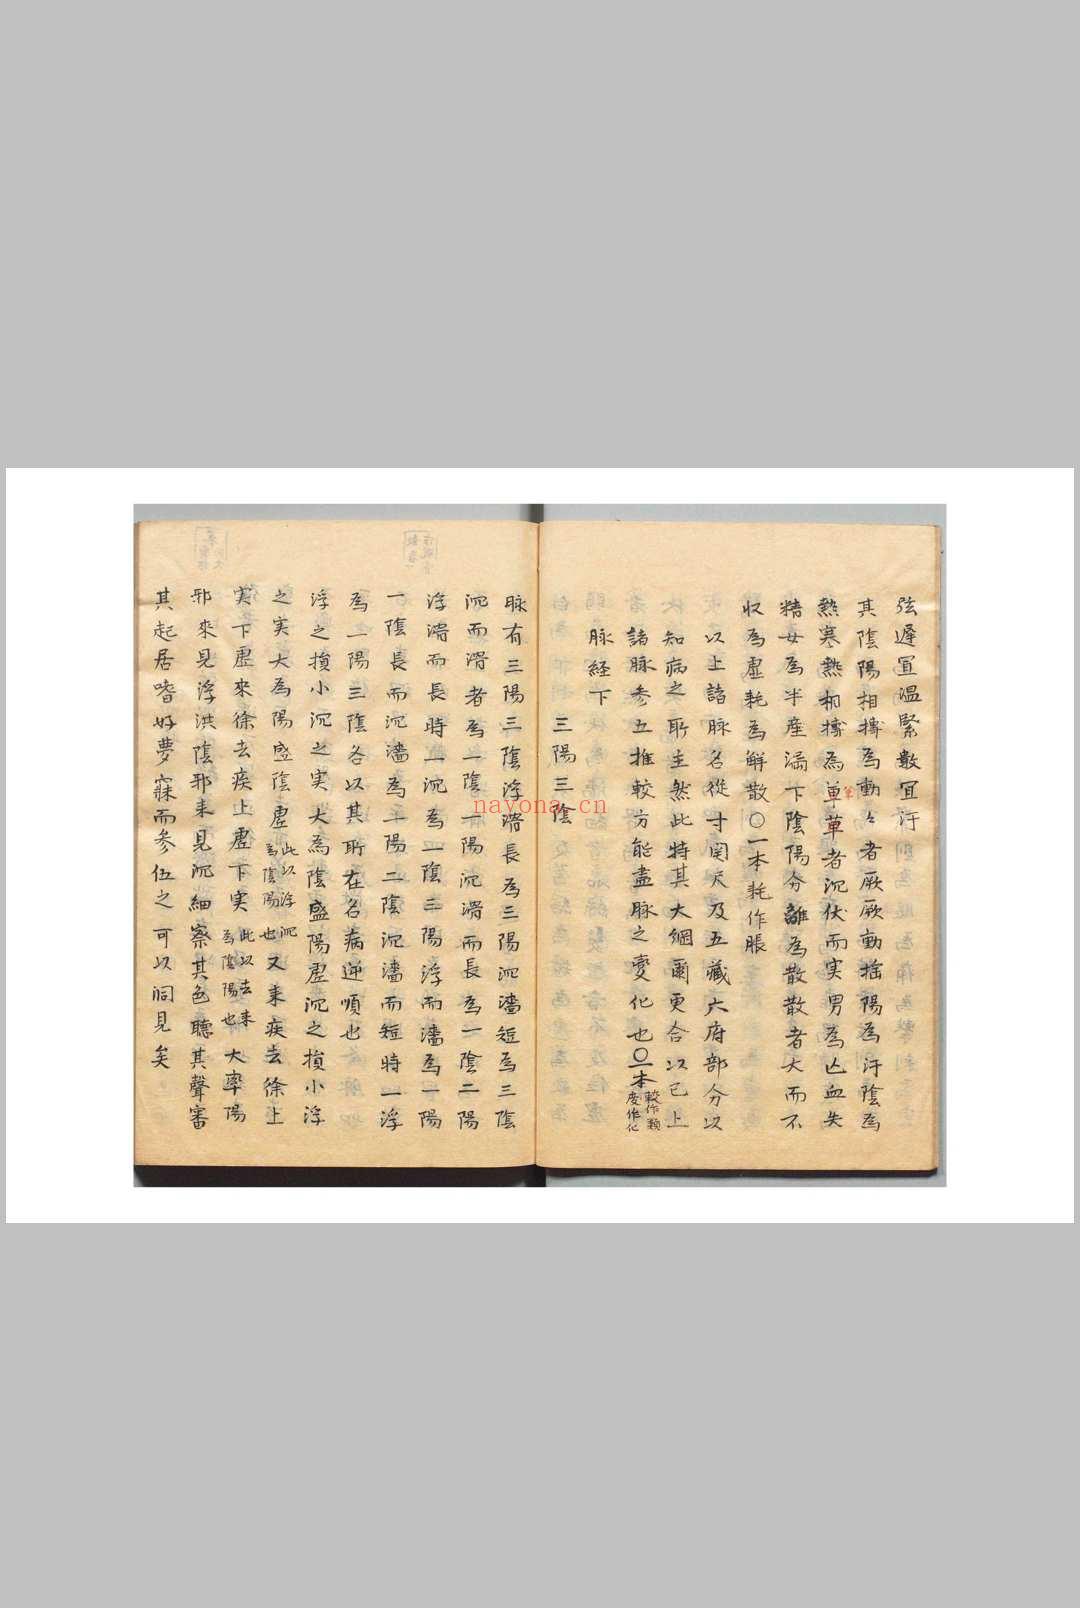 弦遲宜温緊數宜汗
其陰陽相搏為動々者厥厥動揺陽為汗陰為
熱寒熱相搏為革革者沉伏而実男為亾血失
精女為半產漏下陰陽分離為散散者大而不
収為虚耗為解散〇一本耗作脹
以上諸脉名從寸関尺及五藏六府部分以
知病之所生然此特其大綱爾更合以已上
諸脉参五推較方能盡脉之變化也〇一本較作類
度作化
脉経下
三陽三陰
脉有三陽三陰浮滑長為三陽沉濇短為三陰
沉而滑者為一陰一陽沉滑而長為一陰二陽
浮滑而長時一沉為一陰三陽浮而濇為一陽
一陰長而沉濇為一陽二陰沉濇而短時一浮
為一陽三陰各以其所在名病逆順也
浮之損小沉之実大為陰盛陽虚沉之損小浮
之実大為陽盛陰虚此以浮沉
為陰陽也又来疾去徐上
実下虚來徐去疾上虚下実此以去来
為陰陽也大率陽
邪來見浮洪陰邪来見沉細察其色聽其聲審
其起居嗜好夢寐而参伍之可以洞見矣
nayona.cn